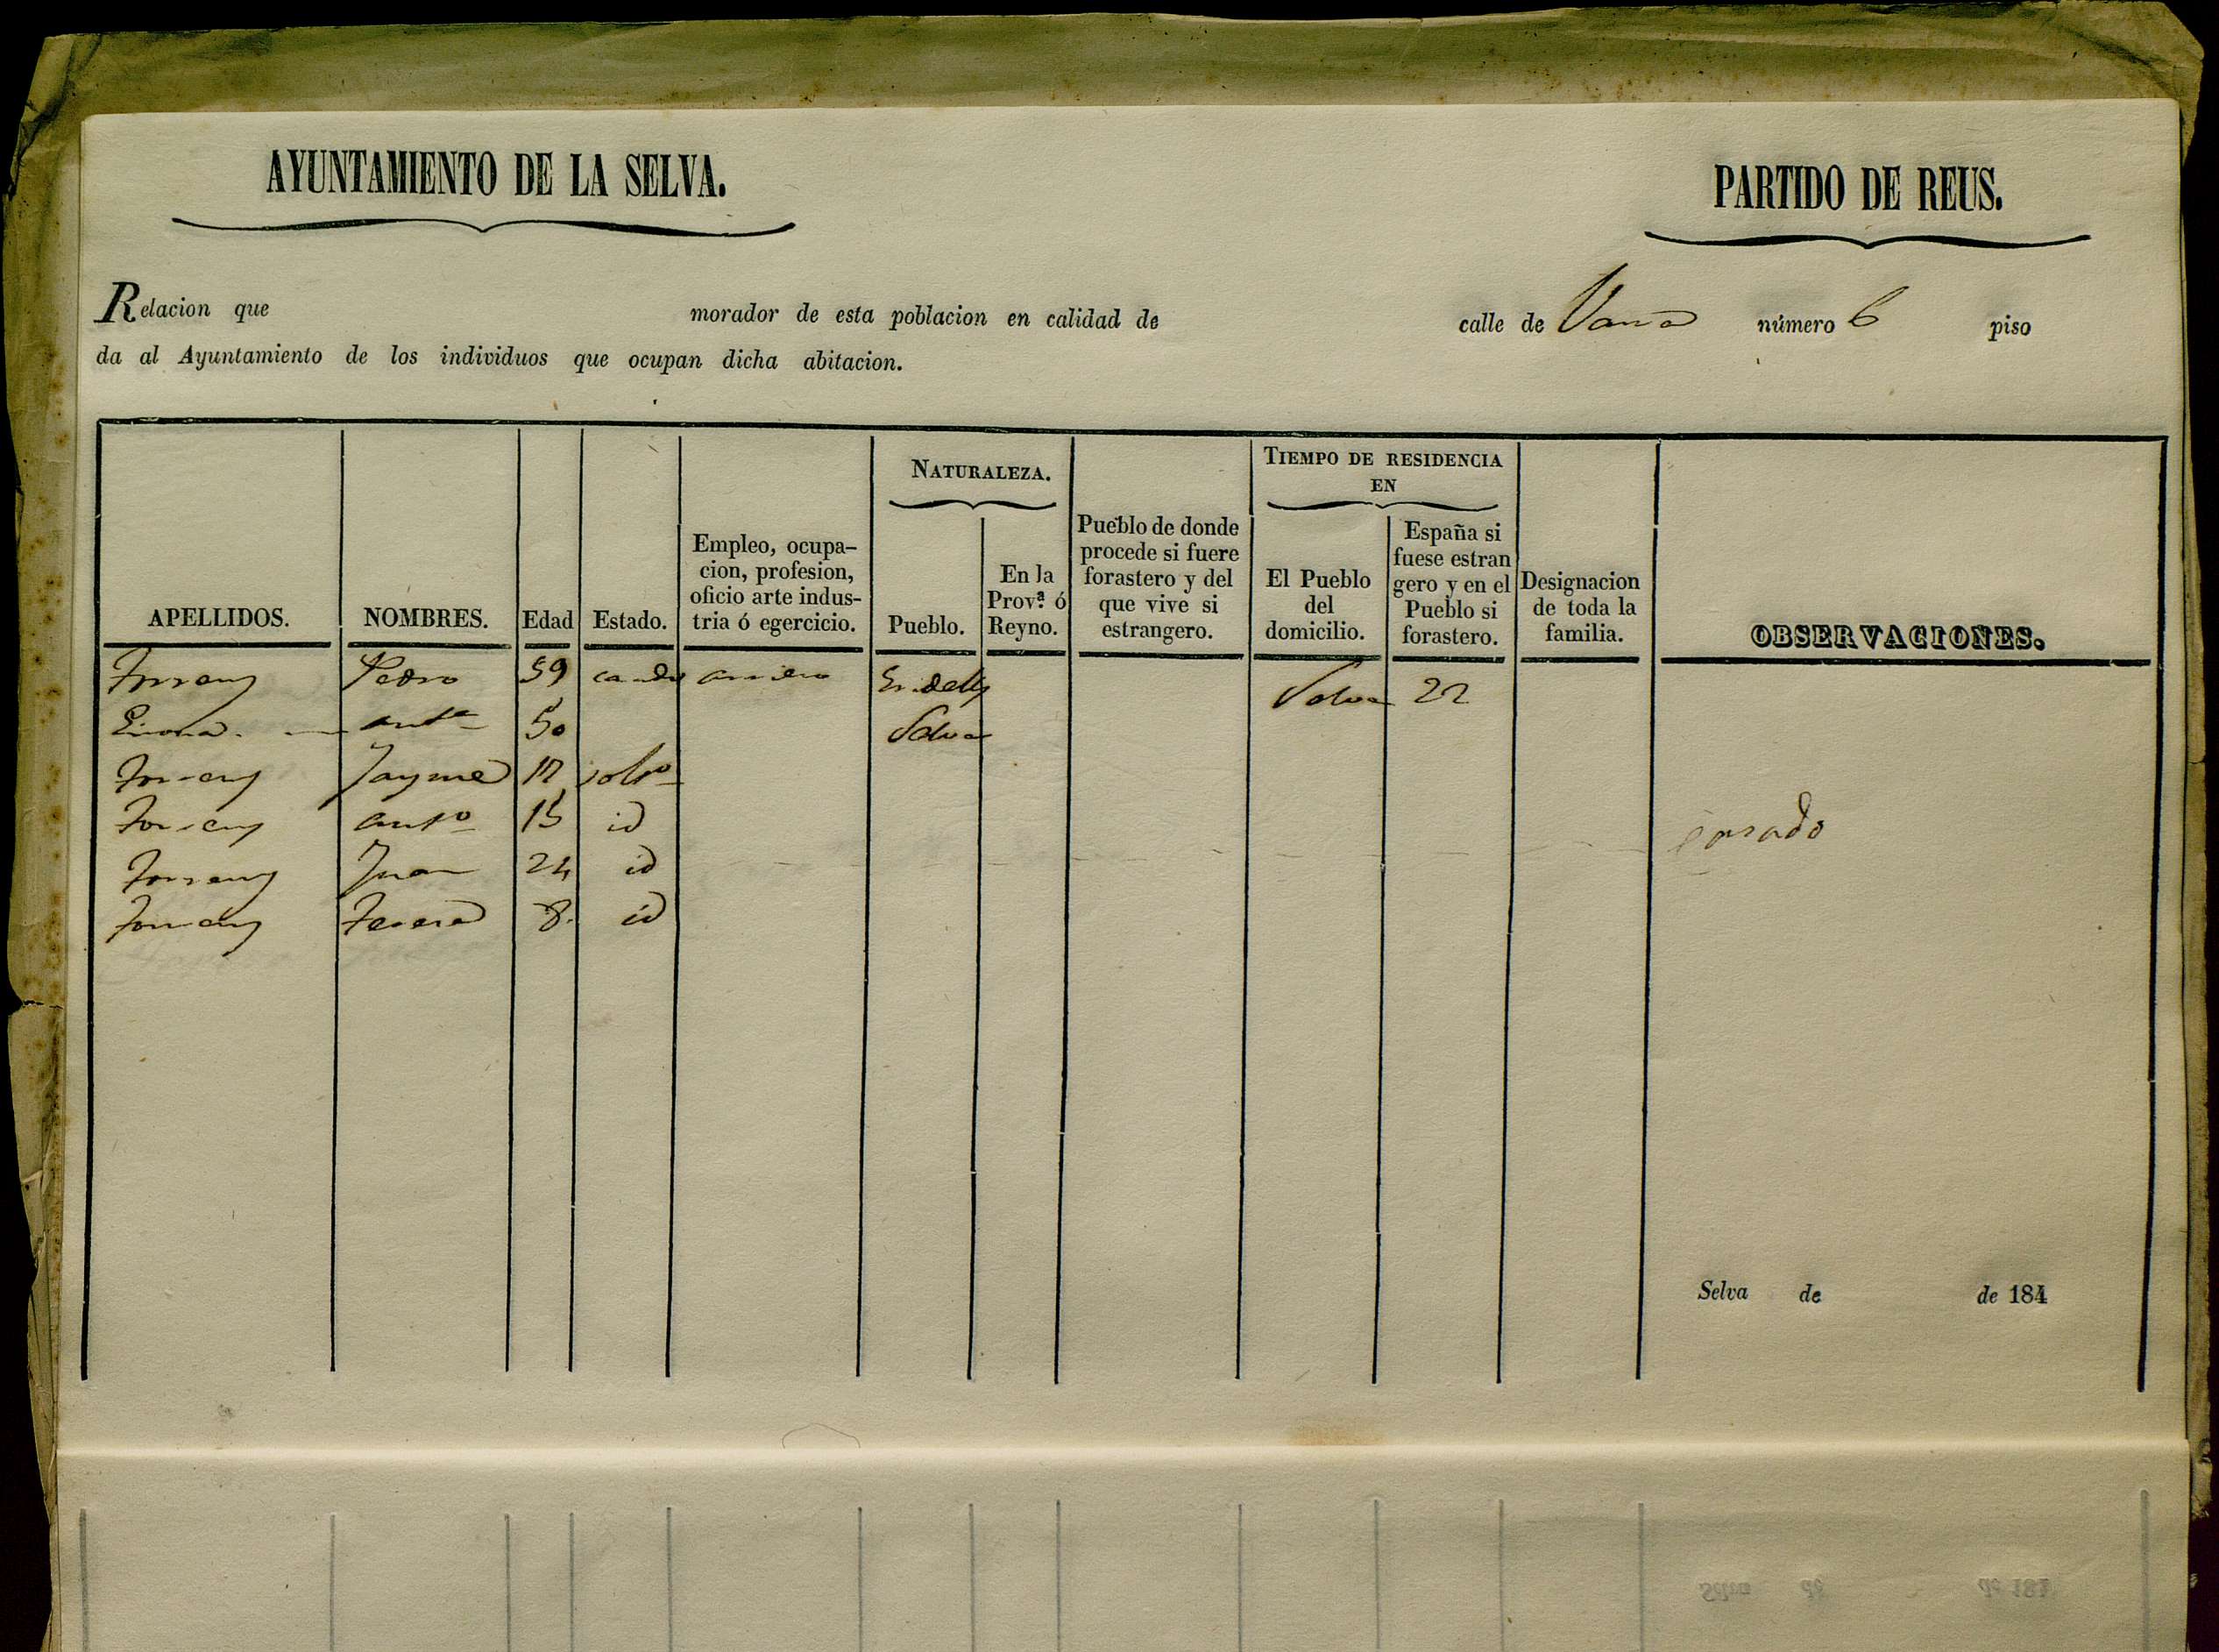 AYUNTAMIENTO DE LA SELVA.
PARTIDO DE REUS.
Relacion que morador de esta poblacion en calidad de calle de número 6 piso
da al Ayuntamiento de los individuos que ocupan dicha abitacion.
NATURALEZA.
TIEMPO DE RESIDENCIA
EN
APELLIDOS.
NOMBRES.
Edad
Estado.
Empleo, ocupa-
cion, profesion,
oficio arte indus-
tria ó egercicio.
Pueblo.
En la
Prov.ª ó
Reyno.
Pueblo de donde
procede si fuere
forastero y del
que vive si
estrangero.
El Pueblo
del
domicilio.
España si
fuese estran
gero y en el
Pueblo si
forastero.
Designacion
de toda la
familia.
OBSERVACIONES.
Pedro 59 arriero Selva 22
Antª 50 Selva
Jayme 17 soltº
Antº 15 id
Juan 24 id casado
Teresa 8. id
Selva de de 184